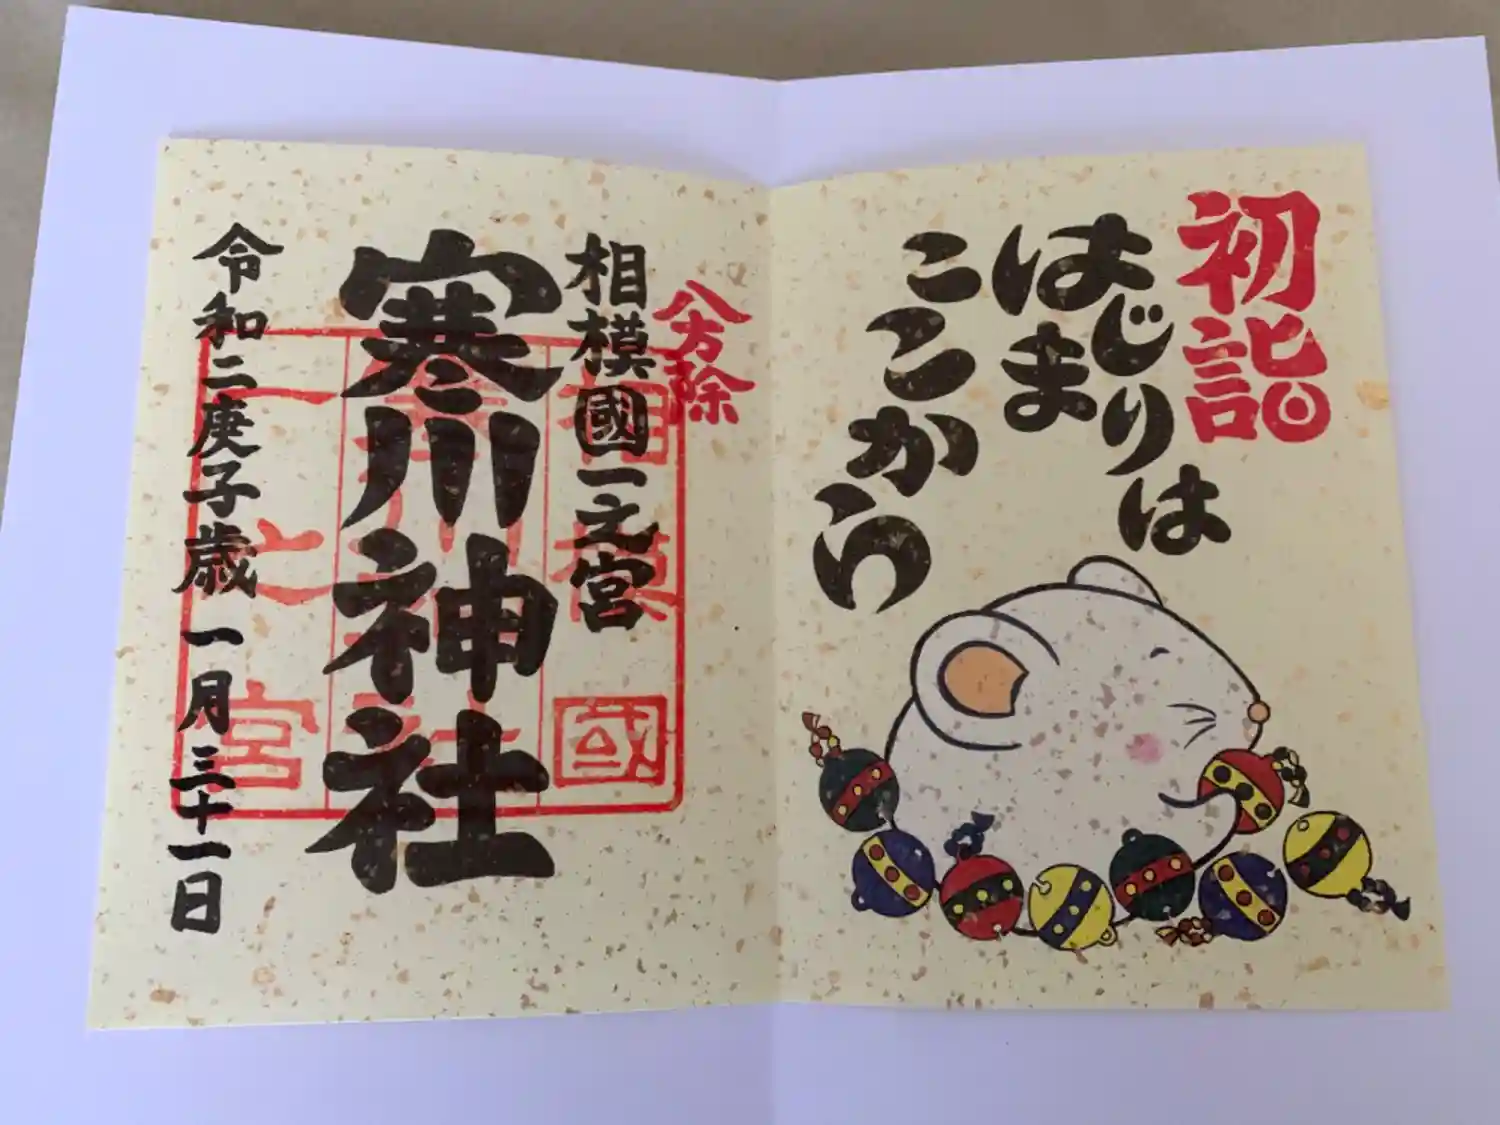 初詣
はじまりは
はじまりは
ここから
八方除
相模國一之宮
寒川神社
令和二庚子歳 一月三十一日
相模國
寒川神社
一之宮